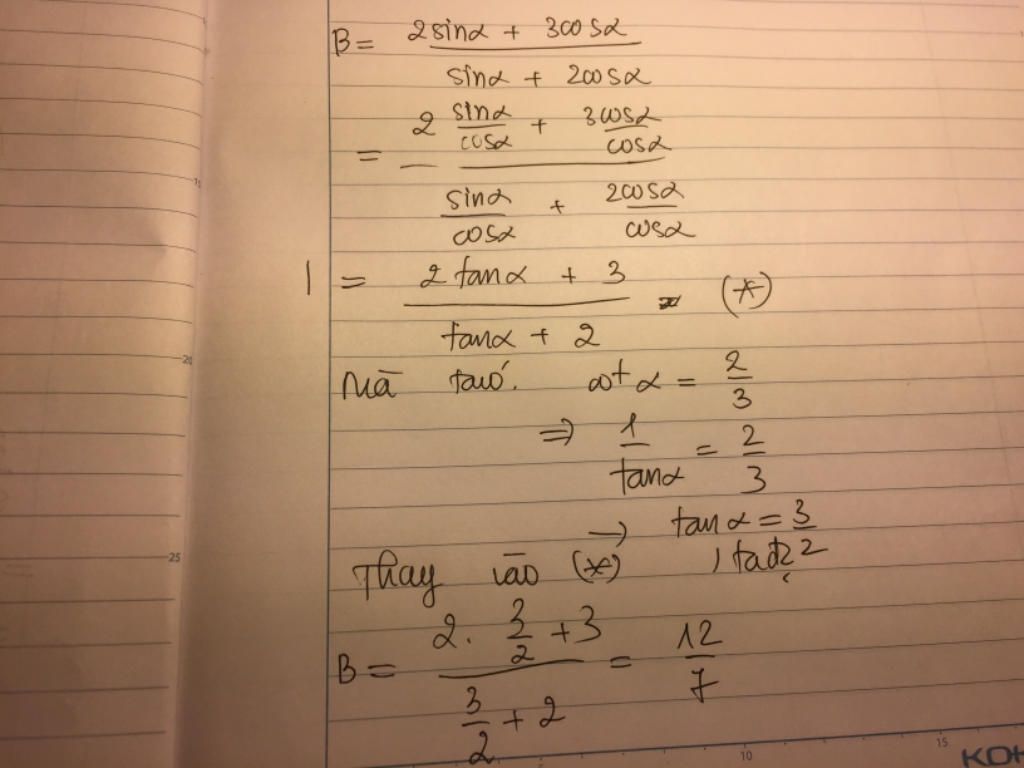 B = (2sinα + 3cosα) / (sinα + 2cosα)
= (2 sinα/cosα + 3cosα/cosα) / (sinα/cosα + 2cosα/cosα)
= (2 tanα + 3) / (tanα + 2) (*)
Mà ta có: cot α = 2/3
⇒ 1/tanα = 2/3
→ tanα = 3/2
Thay vào (*), ta đc
B = (2. 3/2 + 3) / (3/2 + 2) = 12/7
20
25
10
15